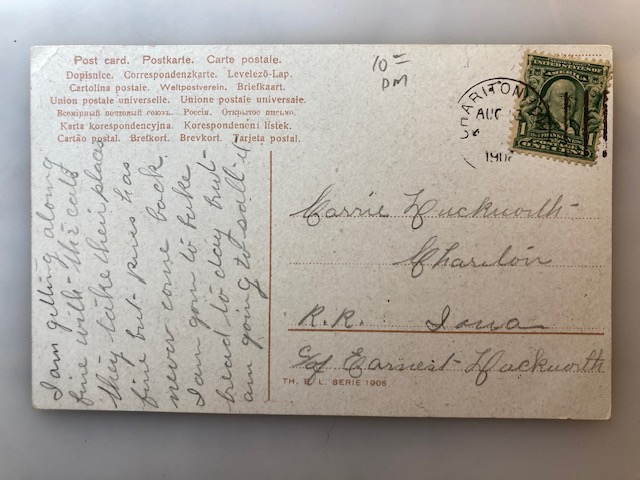 Post card. Postkarte. Carte postale.
Dopisnice. Correspondenzkarte. Levelező-Lap.
Cartolina postale. Weltpostverein. Briefkaart.
Union postale universelle. Unione postale universale.
Всемірный почтовый союзъ. Россія. Открытое письмо.
Karta korespondencyjna. Korespondenční lístek.
Cartão postal. Brefkort. Brevkort. Tarjeta postal.
10=
DM
CHARITON
AUG
190
UNITED STATES OF
AMERICA
1
FRANKLIN
POSTAGE
ONE CENT
I am getting along
fine with the cats
they take their place
fine but has
never come back
I am goin to bake
bread to day but
am going to salt it
Carrie Duckworth
Chariton
R.R. Iowa
c/o Earnest Duckworth
TH. E. L. SERIE 1906